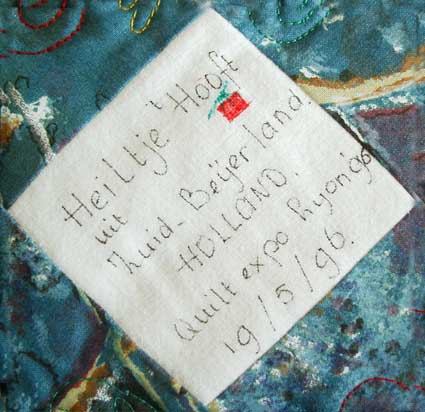 Heiltje 't Hooft
uit
Zuid-Beijerland
HOLLAND.
Quilt expo Lyon 96
19/5/96.